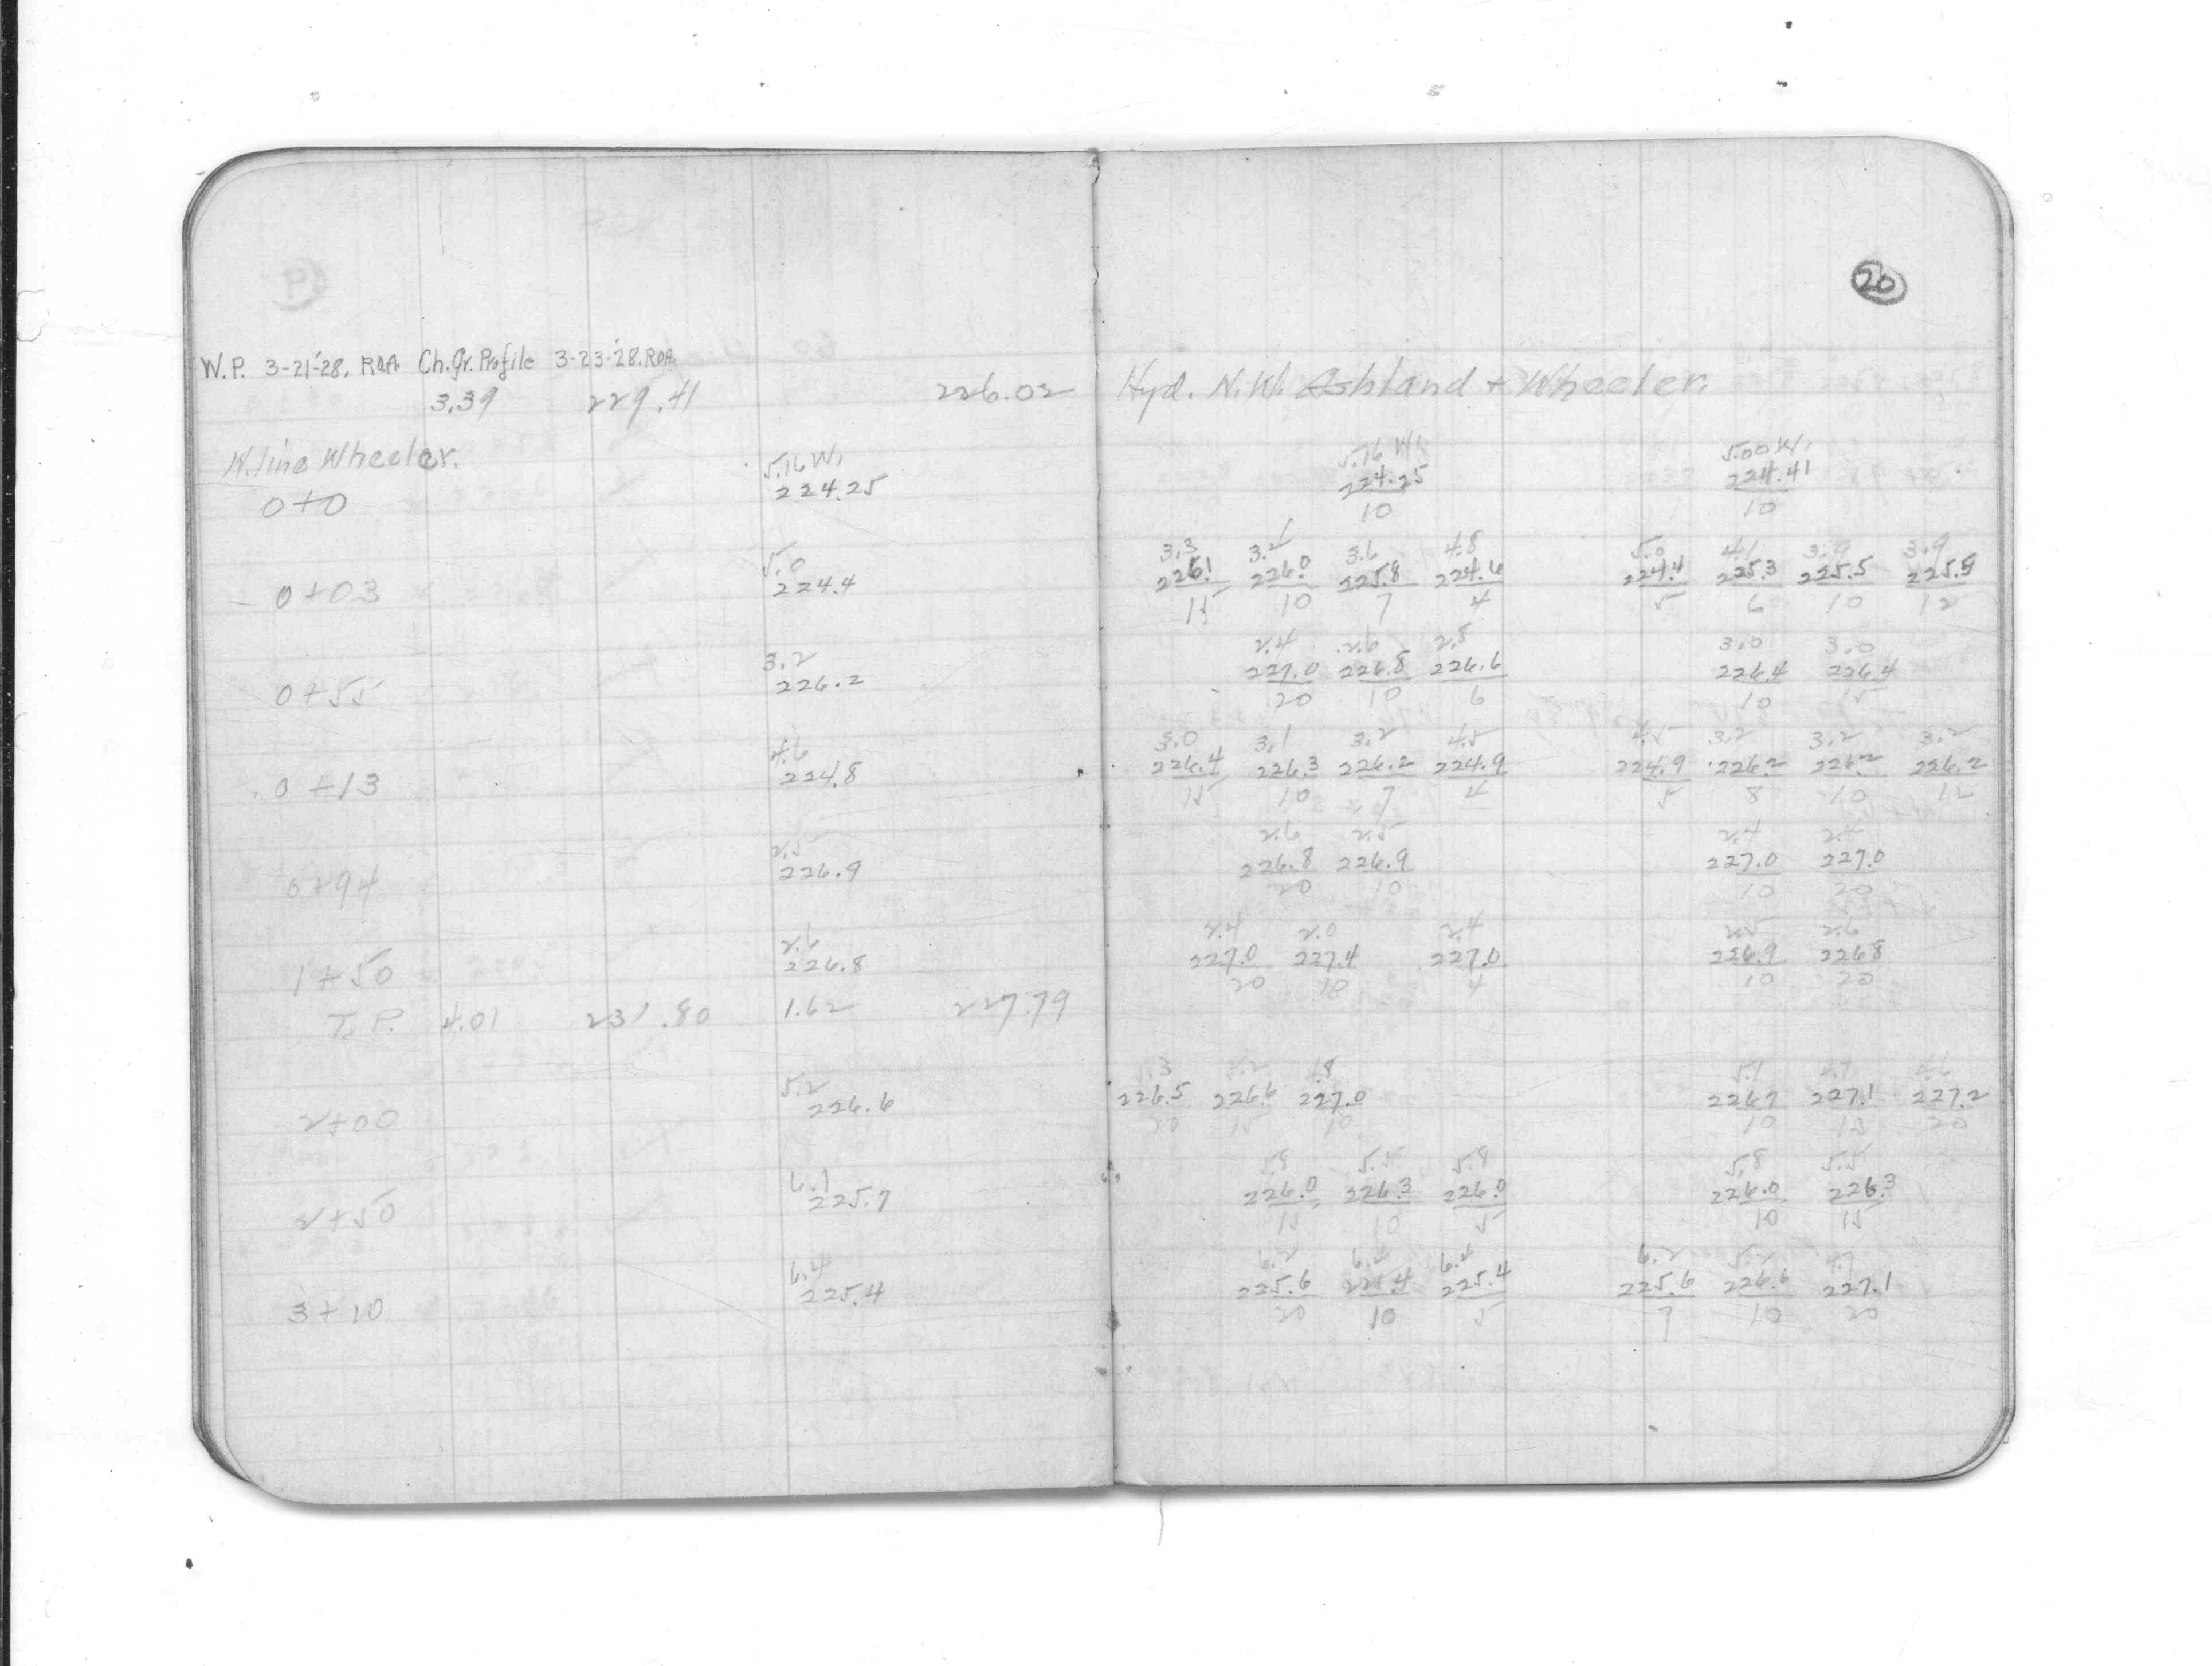 20
W.P. 3-21-'28. R.O.A. Ch.Gr.Profile 3-23-'28.ROA
3.39 229.41 226.02 Hyd. N.W. Ashland + Wheeler.
N.line Wheeler. 5.16 W. 5.16 W. 5.00 W.
224.25 224.25 224.41
0+0 10 10
5.0 3.3 3.4 3.6 4.8 5.0 4.1 3.9 3.9
0+03 224.4 226.1 226.0 225.8 224.6 224.4 225.3 225.5 225.5
15 10 7 4 5 6 10 12
3.2 2.4 2.6 2.8 3.0 3.0
0+55 226.2 227.0 226.8 226.6 226.4 226.4
20 10 6 10 15
4.6 3.0 3.1 3.2 4.5 4.5 3.2 3.2 3.2
0+13 224.8 226.4 226.3 226.2 224.9 224.9 226.2 226.2 226.2
15 10 7 4 5 8 10 12
2.5 2.6 2.5 2.4 2.4
0+94 226.9 226.8 226.9 227.0 227.0
20 10 10 20
2.6 2.4 2.0 2.4 2.5 2.6
1+50 226.8 227.0 227.4 227.0 226.9 226.8
20 10 4 10 20
T.P. 4.01 231.80 1.62 227.79
5.2 5.3 5.2 4.8 5.1 4.7 4.6
2+00 226.6 226.5 226.6 227.0 226.7 227.1 227.2
20 15 10 10 15 20
6.1 5.8 5.5 5.8 5.8 5.5
2+50 225.7 226.0 226.3 226.0 226.0 226.3
15 10 5 10 15
6.4 6.2 6.4 6.4 6.2 5.2 4.7
3+10 225.4 225.6 225.4 225.4 225.6 226.6 227.1
20 10 5 7 10 20